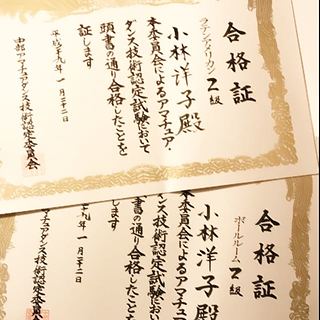 合格証
ラテンアメリカン 2級
小林洋子殿
本委員会によるアマチュア・
ダンス技術認定試験において
頭書の通り合格したことを
証します
平成二十九年一月二十二日
中部アマチュアダンス技術認定委員会
合格証
ボールルーム 2級
小林洋子殿
本委員会によるアマチュ
ダンス技術認定試験にお
書の通り合格したこと
します
九年一月二十二日
マチュアダンス技術認定委員